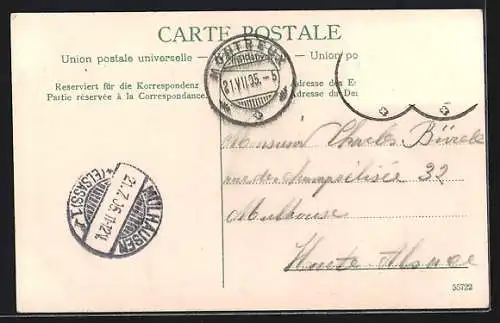 CARTE POSTALE
Union postale universelle — Union po
Reserviert für die Korrespondenz
Partie réservée à la Correspondance.
Adresse des E
Adresse du De
MONTREUX
21.VII.05.-5
MÜLHAUSEN
21.7.05.11-12V.
*(ELSASS)1*
Monsieur Charles
rue des Champs élisées 32
Mulhouse
Haute Alsace
35722